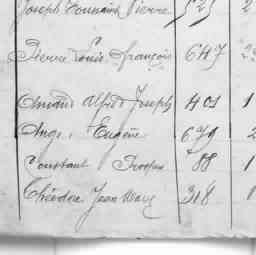 Joseph Toussaint Pierre 525 2
Pierre Louis François 647
Amand Alfred Joseph 401 1
Ange, Eugène 679 2
Constant Prosper 88 1
Théodore Jean Marie 318 1